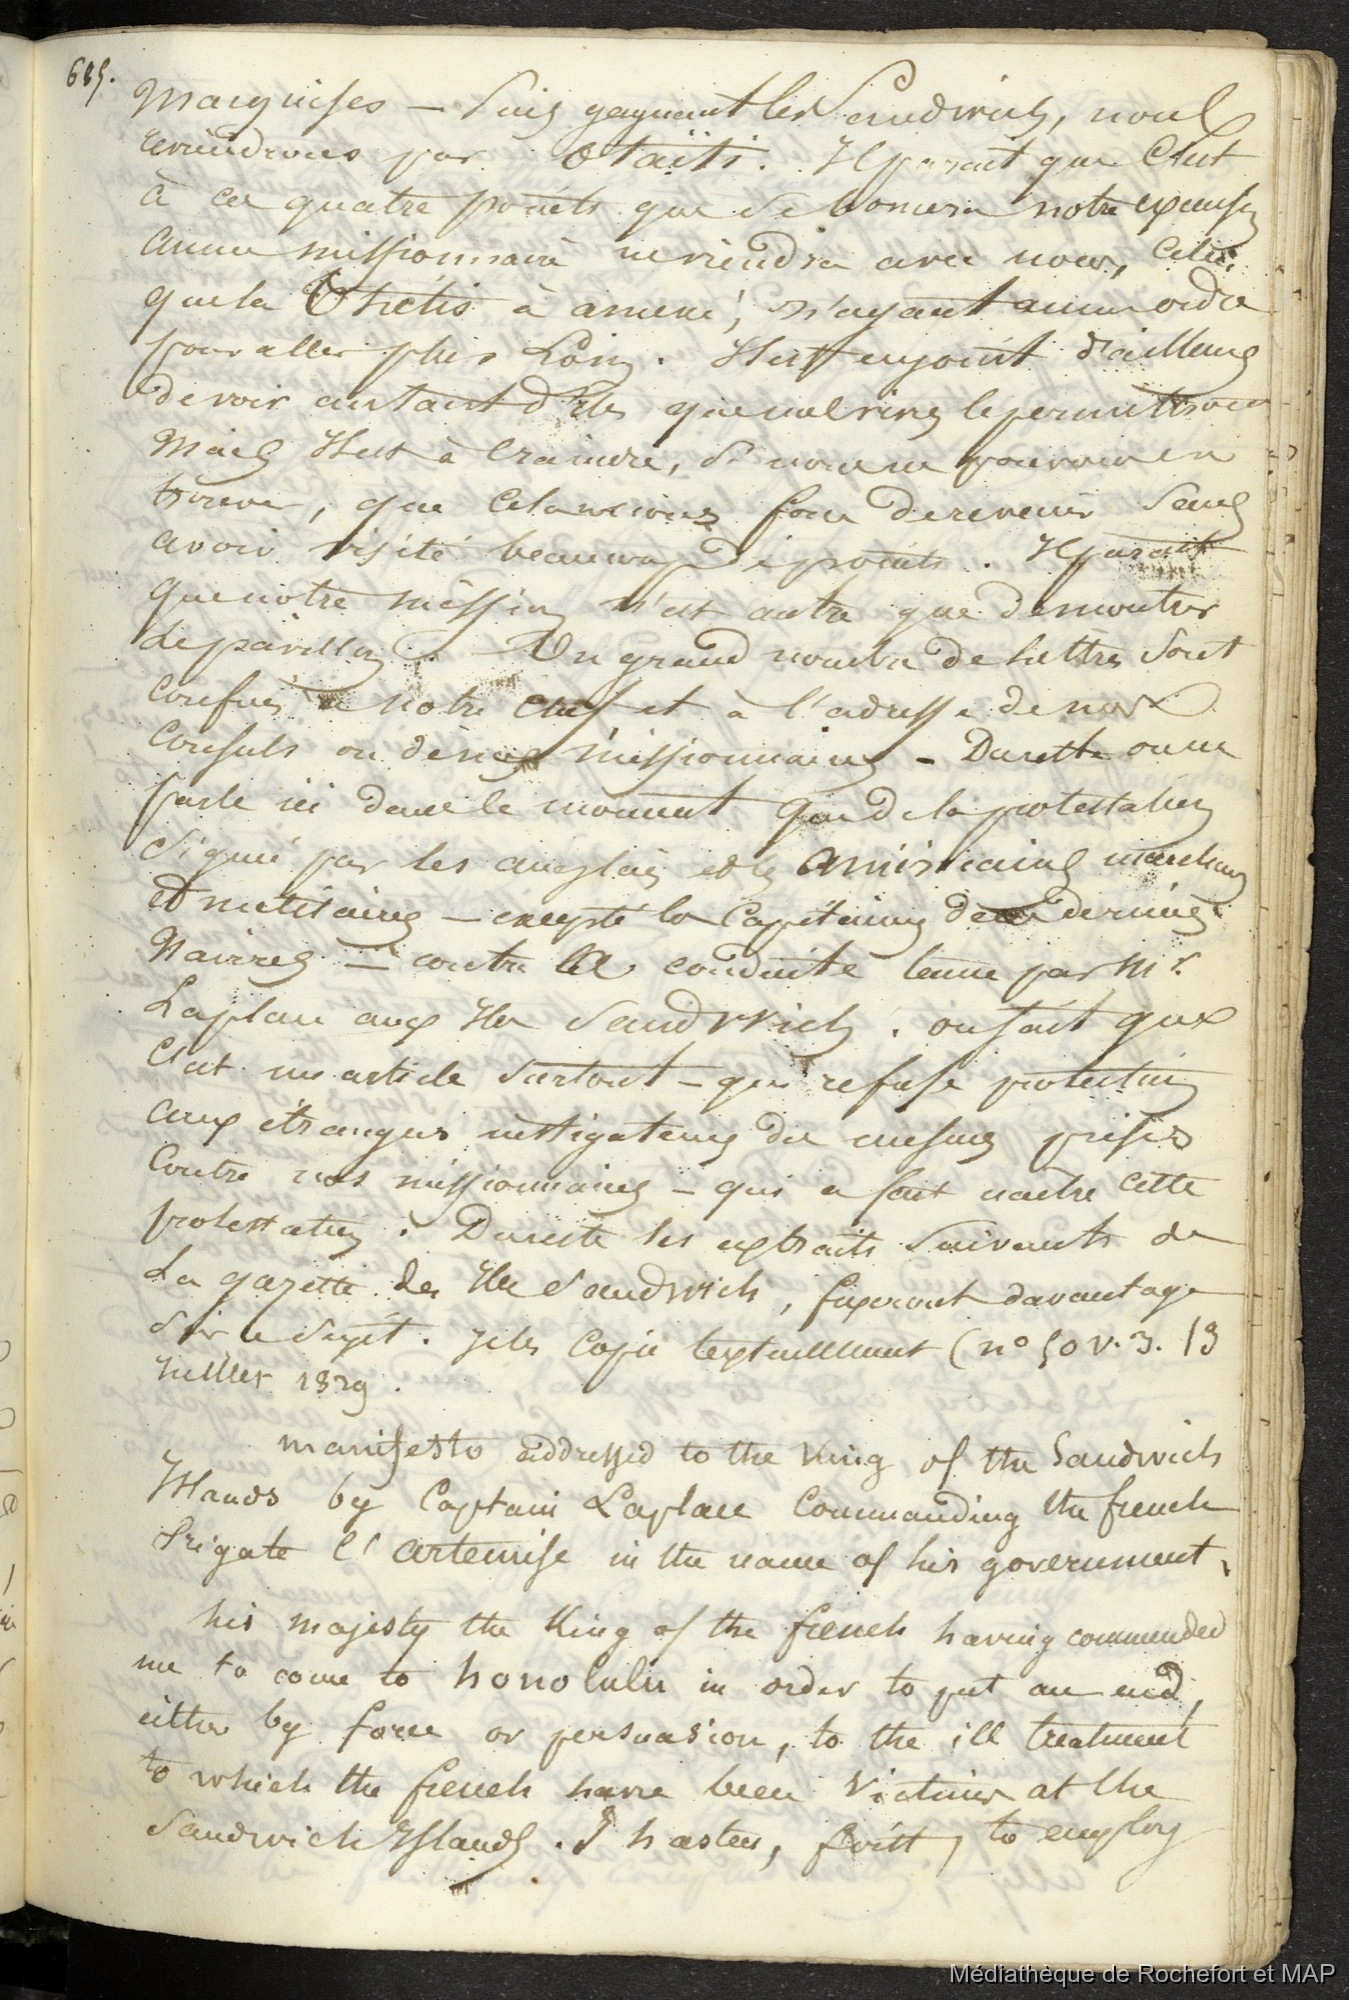 685.
Marquises — Puis gagnant les Sandwich, nous
reviendrons par Otaïti. Il parait que C'est
à ces quatre points que se bornera notre
aucun missionnaire ne viendra avec nous, Celui
que la Thétis à amené, n'ayant aucun ordre
pour aller plus Loin. Il est enjoint d'ailleurs
de voir autant d'Iles que nos vivres le permettront
Mais Il est à Craindre, si nous ne pouvons en
trouver, que Cela ne nous force de revenir Sans
avoir visité beaucoup de points. Il parait
que notre mission n'est autre que de montrer
Le pavillon. Un grand nombre de lettres sont
Confiées à notre Chef et à l'adresse de nos
Consuls ou de nos missionnaires — Dureste on ne
parle ici dans le moment que de la protestation
signé par les anglais et les américains marchands
et militaires — excepté les Capitaines de ces derniers
Navires — contre la conduite tenue par Mr.
Laplace aux Iles Sandwich. on sait que
C'est un article surtout — qui refuse protection
aux étrangers instigateurs des mesures prises
Contre nos missionnaires — qui a fait naître cette
protestation. Dureste les extraits Suivants de
La gazette des Iles Sandwich, fixeront davantage
sur ce sujet. Je les Copie textuellement (n° 50 v. 3. 13
Juillet 1839.
manifesto addressed to the King of the Sandwich
Islands by Captain Laplace Commanding the french
frigate l'artemise in the name of his government.
his majesty the King of the french having commended
me to come to honolulu in order to put an end,
either by force or persuasion, to the ill treatment
to which the french have been Victims at the
Sandwich Islands. I hasten, first, to employ
Médiathèque de Rochefort et MAP